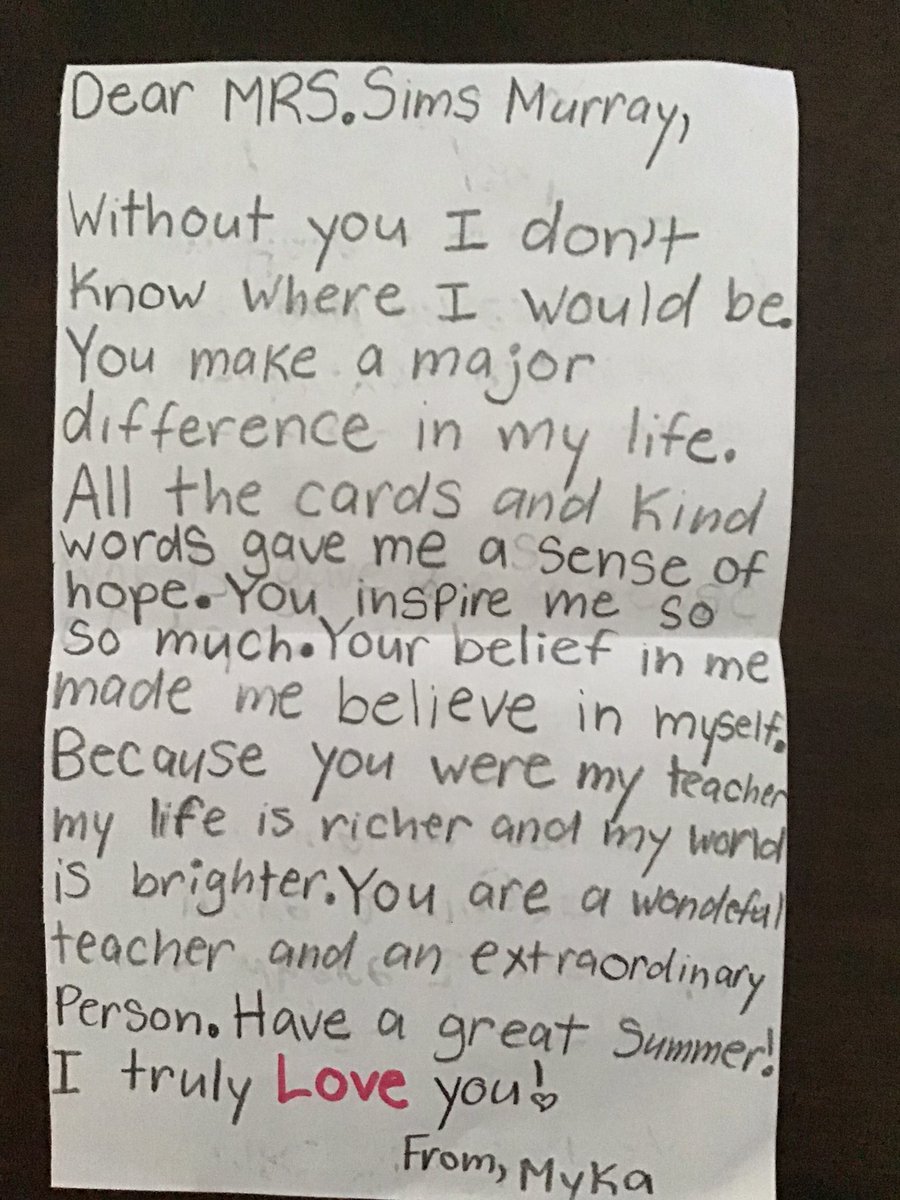 Dear MRS. Sims Murray,
Without you I don't
Know where I would be.
You make a major
difference in my life.
All the cards and Kind
words gave me a sense of
hope. You inspire me so
so much. Your belief in me
made me believe in myself.
Because you were my teacher
my life is richer and my world
is brighter. You are a wondeful
teacher and an extraordinary
Person. Have a great Summer!
I truly Love you!
From, MyKa